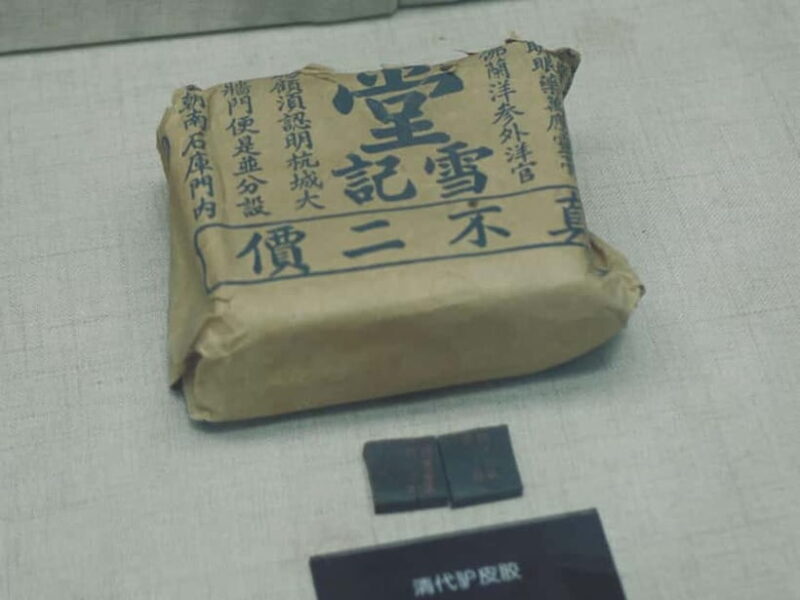 眼藥萬應
蘭洋參外洋官
堂
雪記
顧須認明杭城大
牆門便是並分設
朝南石庫門內
真不二價
清代驴皮胶